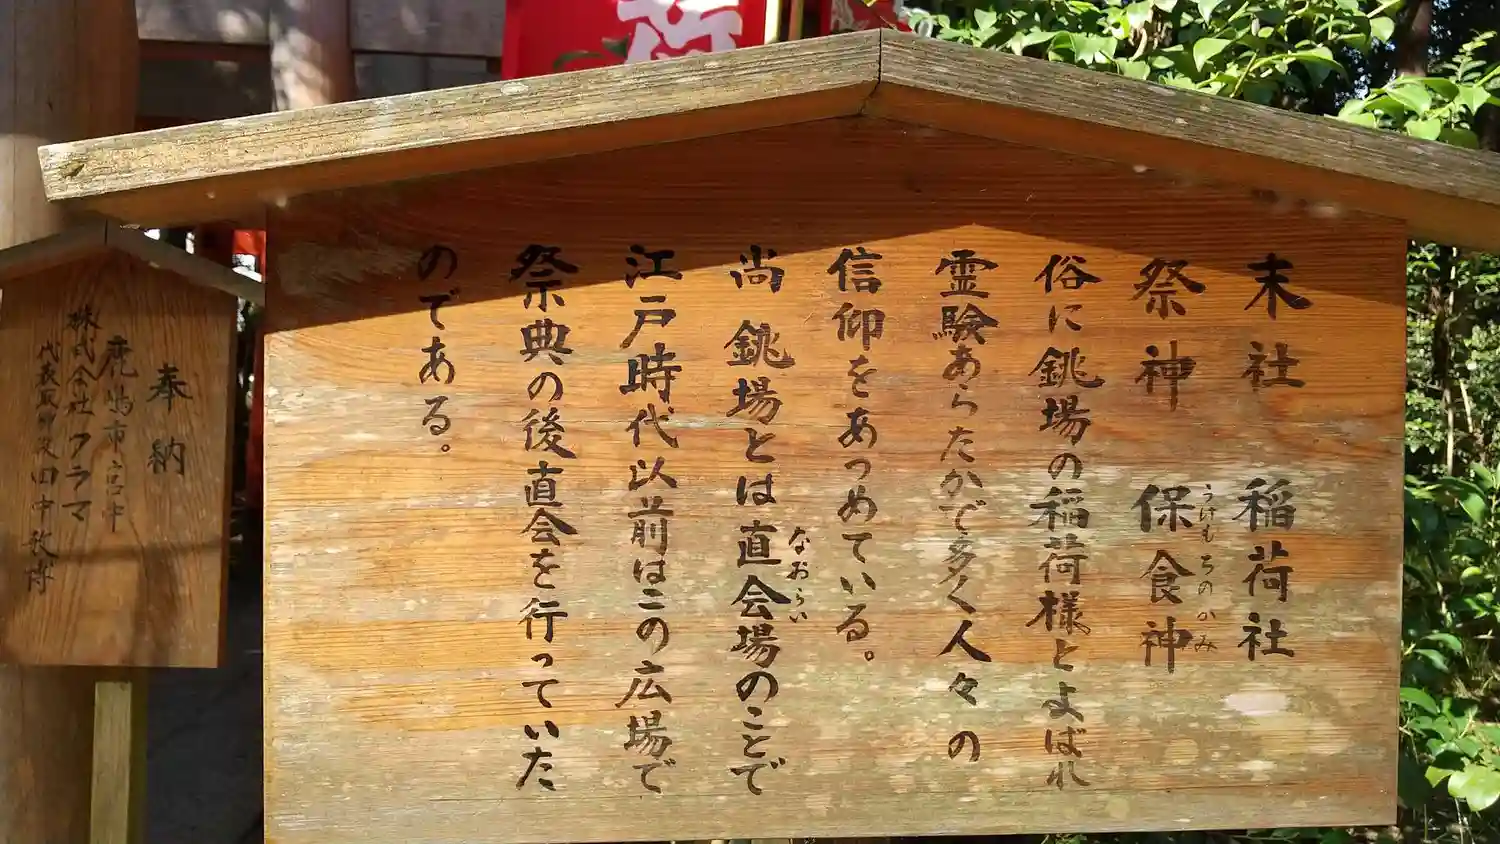 末社 稲荷社
祭神 保食神
うけもちのかみ
俗に銚場の稲荷様とよばれ
霊験あらたかで多く人々の
信仰をあつめている。
尚 銚場とは直会場のことで
なおらい
江戸時代以前はこの広場で
祭典の後直会を行っていた
のである。
奉納
鹿嶋市宮中
株式会社フラマ
代表取締役田中